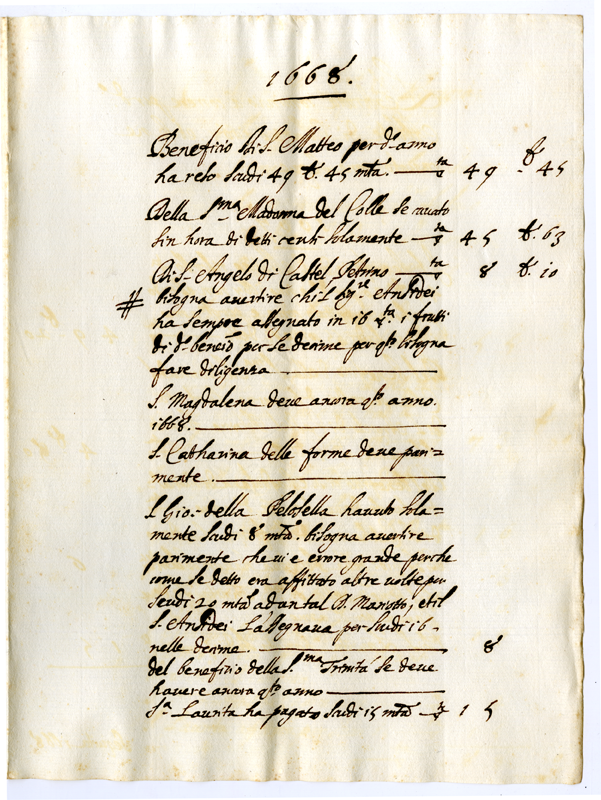 1668.
Beneficio di S. Matteo per d.o anno
ha reso scudi 49 b. 45 mta. — 49 b. 45
Della S.ma Madonna del Colle se avuto
sin hora di detti centi solamente — 45 b. 63
Di S. Angelo di Castel — 8 b. 10
# bisogna avertire chi il Sig.re Ansidei
ha sempre assegnato in 16 i frutti
di d.o benefi.o per le decime per q.o bisogna
fare diligenza —
S. Magdalena deve ancora q.o anno.
1668. —
S. Catharina delle forme deve pari=
mente. —
S. Gio: della Pelosella havuto sola=
mente scudi 8 mta. bisogna avertire
parimente che vi e errore grande perche
come se detto era affittato altre volte per
scudi 20 mta ad un tal Mariotto, et il
S. Ansidei l'assegnava per scudi 16 -
nelle decime. — 8
del beneficio della S.ma Trinità se deve
havere ancora q.o anno —
S.a Laurita ha pagato scudi 15 mta — 15